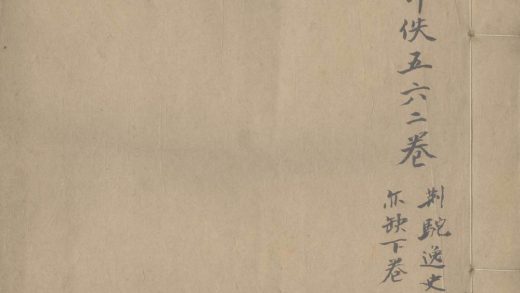 佚五六二卷
荆駝逸史
亦缺下卷